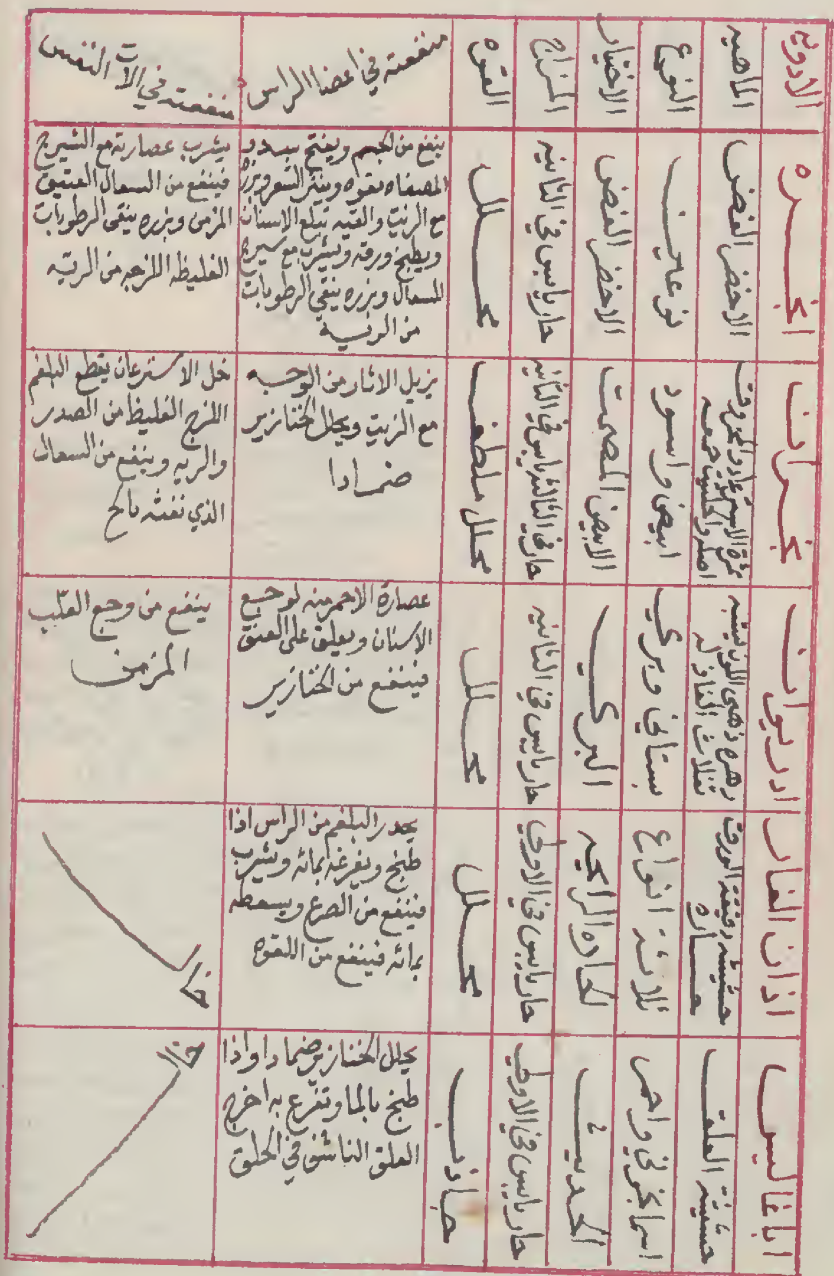 الادويه
الماهيه
النوع
الاختيار
المزاج
القوه
منفعته في اعضا الراس
منفعته في الات النفس
انجـــره
الاخضر الغض
نوعان
الاخضر الغض
حار يابس في الثانيه
محلل
ينفع من الخشم ويفتح سدد
المصفاه بقوه وينثر الشعر وبزره
مع الزيت والقيه تبلع الاسنان
ويطبخ ورقه ويشرب مع شيرج
للسعال وبزره ينقي الرطوبات
من الرئــة
يشرب عصارته مع الشيرج
فينفع من السعال العتيق
المزمن وبزره ينقي الرطوبات
الغليظه اللزجه من الرئيه
انجدان
ابيض واسود
الابيض المصمت
حار في الثالثه يابس في الثانيه
محلل ملطف
يزيل الاثار من الوجه
مع الزيت ويحلل الخنازير
ضمادا
خل الاسترغان يقطع البلغم
اللزج الغليظ من الصدر
والريه وينفع من السعال
الذي نفثه مالح
ادريوان
زهره ذهبي اللون يشبه
بستاني وبري
البري
حار يابس في الثانيه
محلل
عصارة الاحمر منه لوجع
الاسنان ويعلق على العنق
فينفع من الخنازير
ينفع من وجع القلب
المزمن
اذان الفار
حشيشه دقيقة الورق
حاره
ثلاثة انواع
الحاده الرايحه
حار يابس في الاولي
محلل
يحدر البلغم من الراس اذا
طبخ ويغرغه بمائه ويشرب
فينفع من الصرع ويسعطه
بمائه فينفع من اللقوه
خال
اناغاليس
حشيشة العلق
اسمانجوني واحمر
الحديث
حار يابس في الاولي
جاذب
يحلل الخنازير ضمادا واذا
طبخ بالما وتغرغ به اخرج
العلق الناشف في الحلق
خال